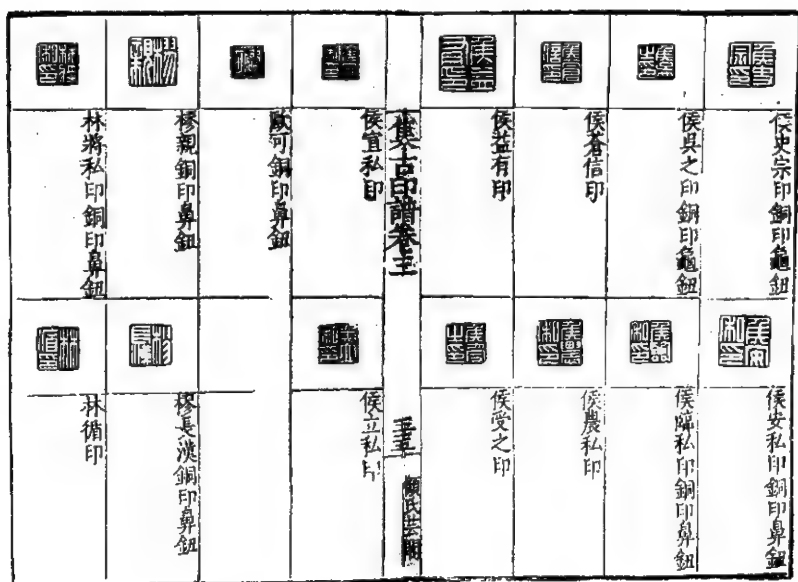 侯史宗印銅印龜鈕
侯安私印銅印鼻鈕
侯吳之印銅印龜鈕
侯臨私印銅印鼻鈕
侯蒼信印
侯農私印
侯益有印
侯受之印
集古印譜卷三
顧氏芸閣
侯宣私印
侯立私印
歐可銅印鼻鈕
穆親銅印鼻鈕
穆長漢銅印鼻鈕
林將私印銅印鼻鈕
林循印